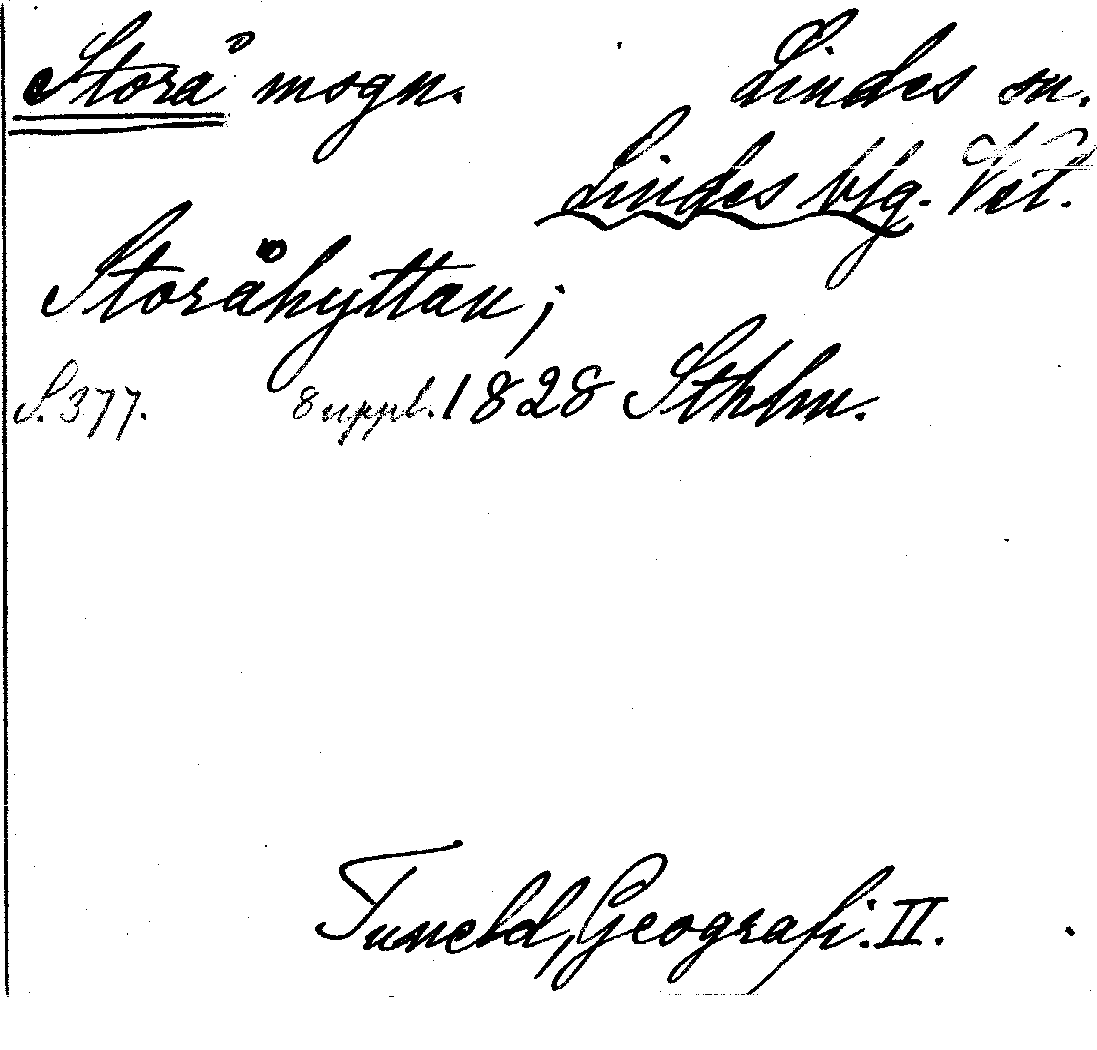 Storå msgn. Lindes sn.
Lindes bfg. Vst.
Storåhyttan;
S. 377. 8 uppl. 1828 Sthlm.
Tuneld, Geografi. II.